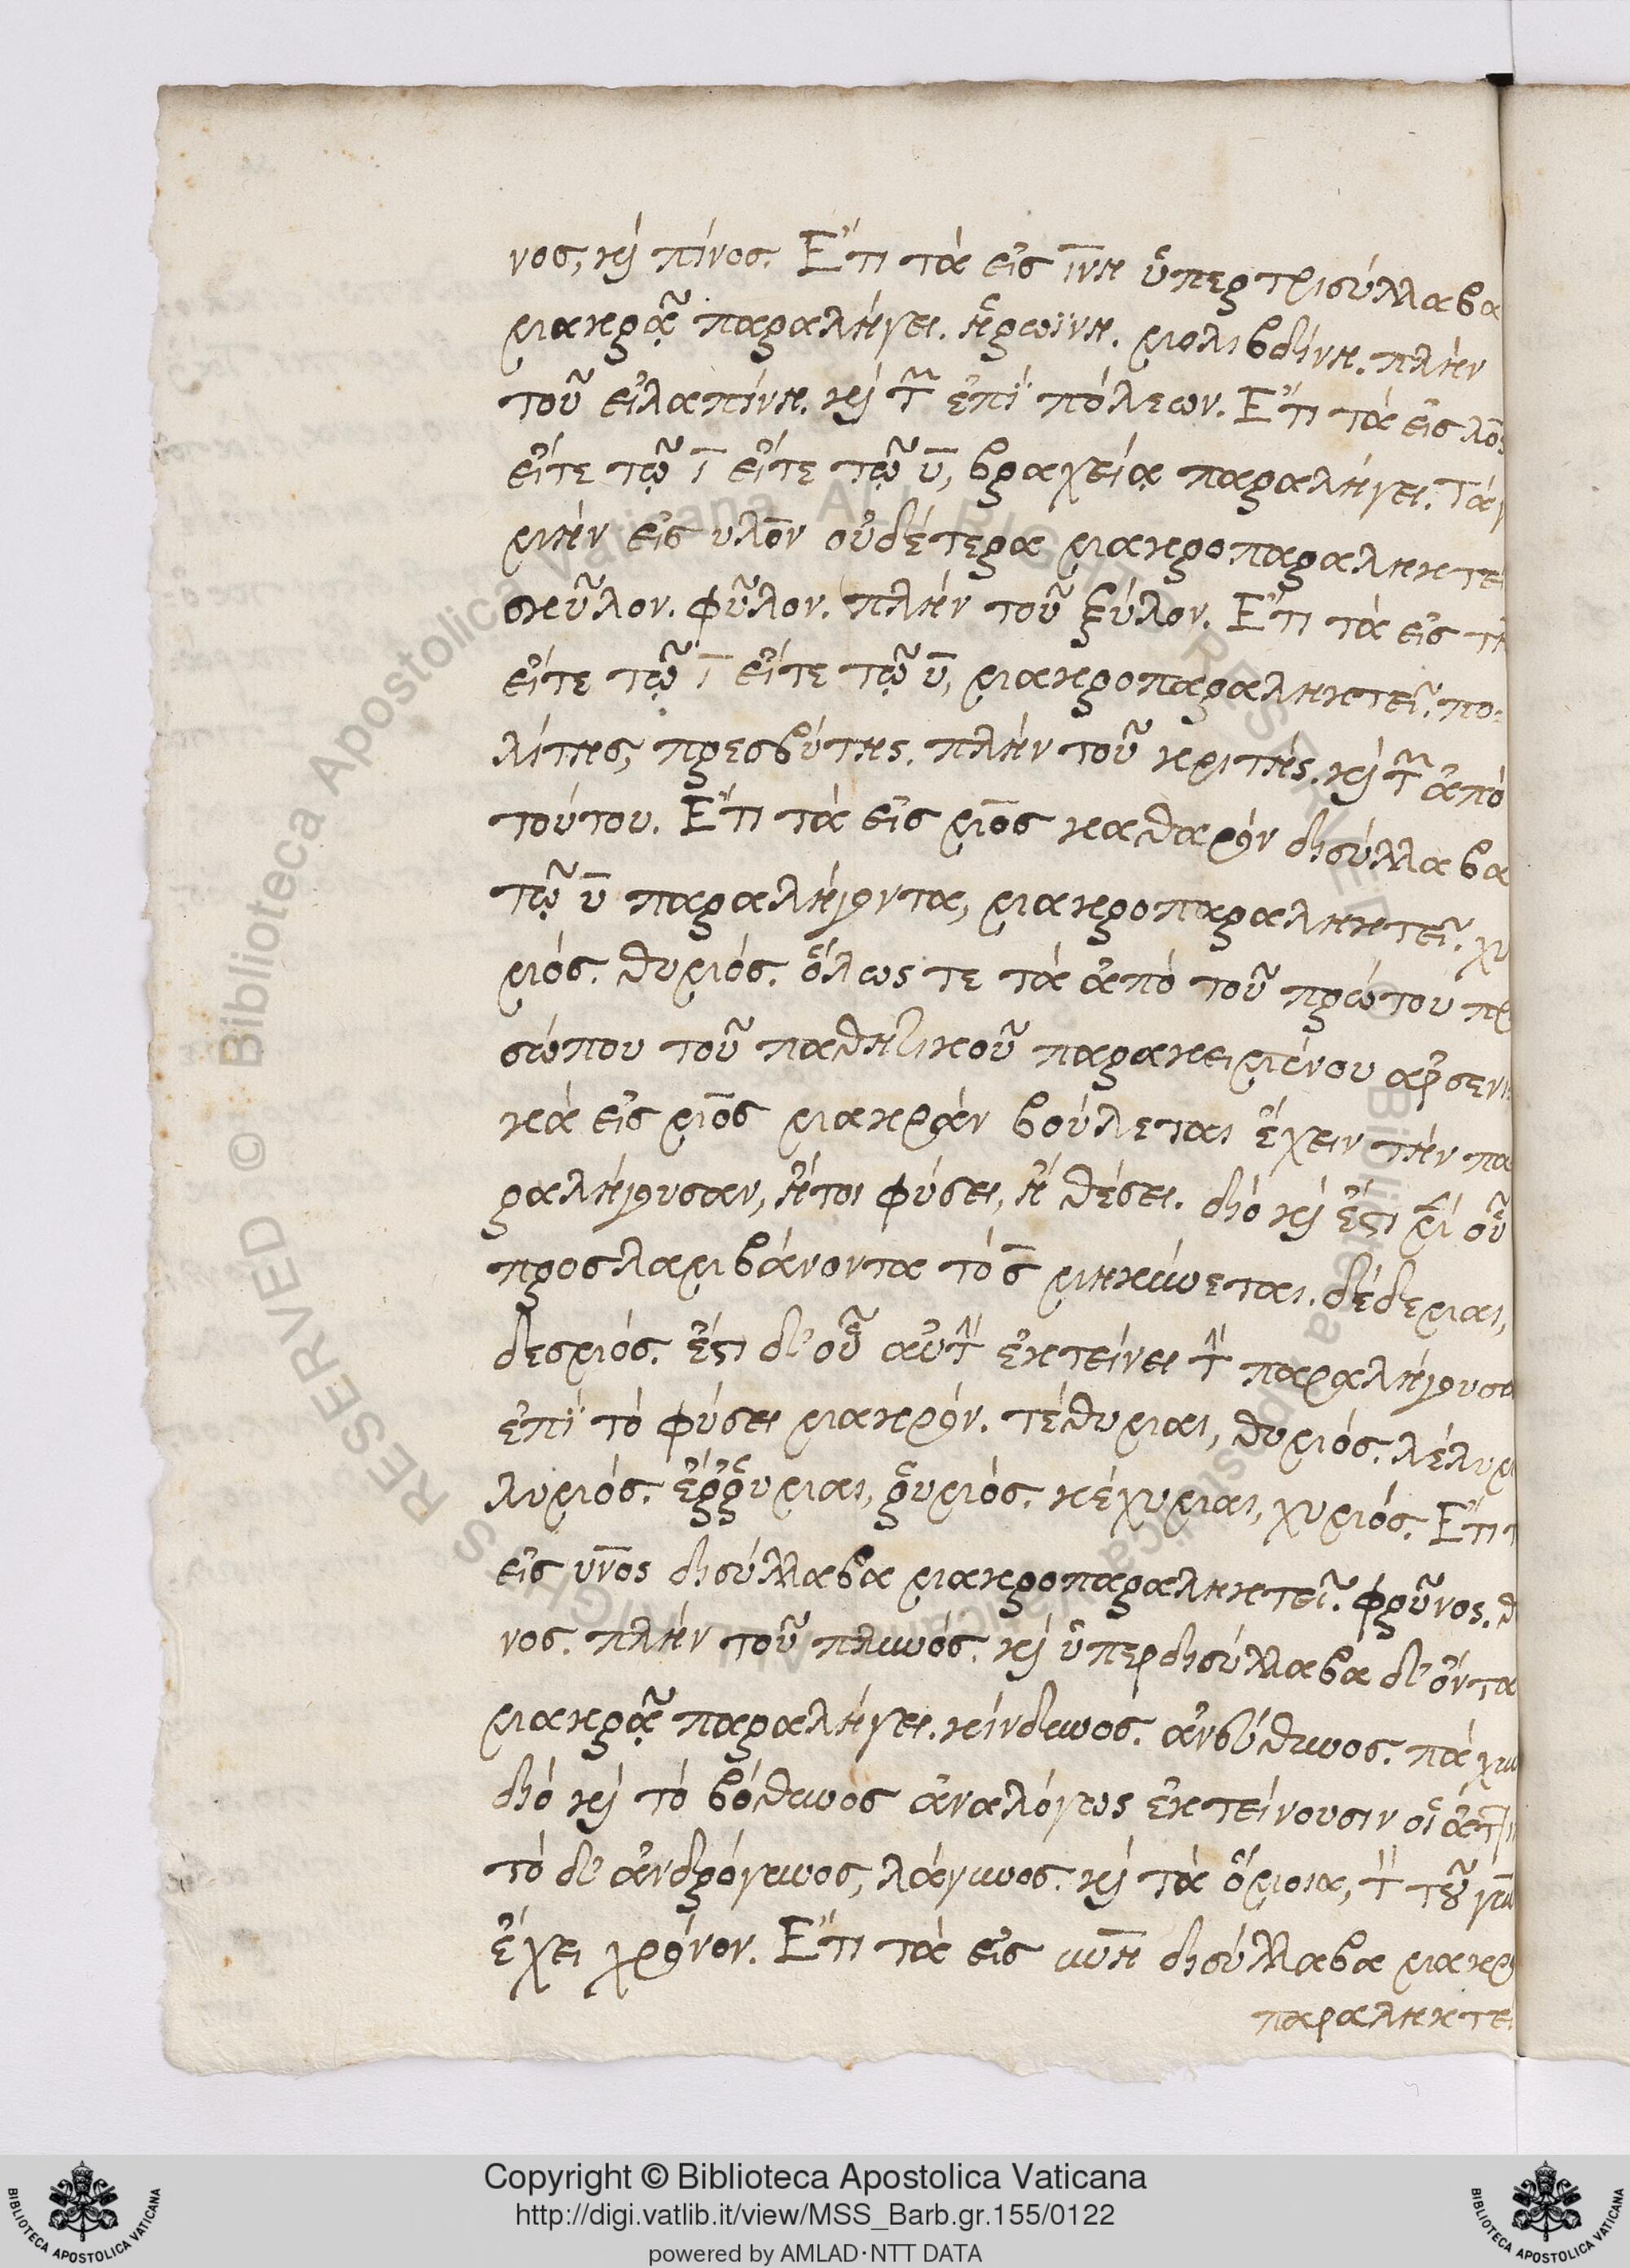 νος, καὶ πίνος. Ἔτι τὰ εἰς ινη ὑπερτρισύλλαβα
μακρᾷ παραλήγει. ἡρωΐνη. μολιβδίνη. πλὴν
τοῦ εἰλαπίνη. καὶ τῶν ἐπὶ πόλεων. Ἔτι τὰ εἰς λος
εἴτε τῷ ι εἴτε τῷ υ, βραχείᾳ παραλήγει. τὰ
μὴν εἰς υλον οὐδέτερα μακροπαραληκτεῖ
σκῦλον. φῦλον. πλὴν τοῦ ξύλον. Ἔτι τὰ εἰς τη
εἴτε τῷ ι εἴτε τῷ υ, μακροπαραληκτεῖ. πο-
λίτης, πρεσβύτης. πλὴν τοῦ κριτής. καὶ τῶν ἀπὸ
τούτου. Ἔτι τὰ εἰς μος καθαρὸν δισύλλαβα
τῷ υ παραλήγοντα, μακροπαραληκτεῖ. χυ
μός. θυμός. ὅλως τε τὰ ἀπὸ τοῦ πρώτου πρ
σώπου τοῦ παθητικοῦ παρακειμένου ἀρσενι
κὰ εἰς μος μακρὰν βούλεται ἔχειν τὴν πα
ραλήγουσαν, ἤτοι φύσει, ἢ θέσει. διὸ καὶ ἔστι μὲν οὗ
προσλαμβάνοντα τὸ ς μηκύνεται. δέδεμαι,
δεσμός. ἔστι δ' οὗ αὐτὴν ἐκτείνει τὴν παραλήγουσα
ἐπὶ τὸ φύσει μακρόν. τέθυμαι, θυμός. λέλυμ
λυμός. ἔῤῥυμαι, ῥυμός. κέχυμαι, χυμός. Ἔτι τ
εἰς υνος δισύλλαβα μακροπαραληκτεῖ. φρῦνος. θ
νος. πλὴν τοῦ πλυνός. καὶ ὑπερδισύλλαβα δ' ὄντα
μακρᾷ παραλήγει. κίνδυνος. ἀνεύθυνος. πάχυν
διὸ καὶ τὸ βόθυνος ἀναλόγως ἐκτείνουσιν οἱ
τὸ δ' ἀνδρόγυνος, λάγυνος. καὶ τὰ ὅμοια, τὸν τοῦ γυν
ἔχει χρόνον. Ἔτι τὰ εἰς υνη δισύλλαβα μακρο
παραληκτεῖ
Copyright © Biblioteca Apostolica Vaticana
http://digi.vatlib.it/view/MSS_Barb.gr.155/0122
powered by AMLAD·NTT DATA